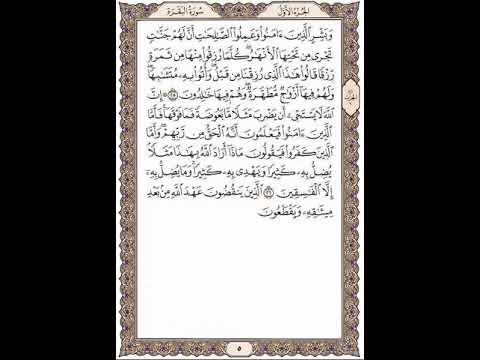 الجزء الأول
سورة البقرة
وَبَشِّرِ ٱلَّذِينَ ءَامَنُوا۟ وَعَمِلُوا۟ ٱلصَّـٰلِحَـٰتِ أَنَّ لَهُمْ جَنَّـٰتٍ
تَجْرِى مِن تَحْتِهَا ٱلْأَنْهَـٰرُ ۖ كُلَّمَا رُزِقُوا۟ مِنْهَا مِن ثَمَرَةٍ
رِّزْقًا قَالُوا۟ هَـٰذَا ٱلَّذِى رُزِقْنَا مِن قَبْلُ ۖ وَأُتُوا۟ بِهِۦ مُتَشَـٰبِهًا ۖ
وَلَهُمْ فِيهَآ أَزْوَٰجٌ مُّطَهَّرَةٌ ۖ وَهُمْ فِيهَا خَـٰلِدُونَ ٢٥ إِنَّ
ٱللَّهَ لَا يَسْتَحْىِۦٓ أَن يَضْرِبَ مَثَلًا مَّا بَعُوضَةً فَمَا فَوْقَهَا ۚ فَأَمَّا
ٱلَّذِينَ ءَامَنُوا۟ فَيَعْلَمُونَ أَنَّهُ ٱلْحَقُّ مِن رَّبِّهِمْ ۖ وَأَمَّا
ٱلَّذِينَ كَفَرُوا۟ فَيَقُولُونَ مَاذَآ أَرَادَ ٱللَّهُ بِهَـٰذَا مَثَلًا ۘ
يُضِلُّ بِهِۦ كَثِيرًا وَيَهْدِى بِهِۦ كَثِيرًا ۚ وَمَا يُضِلُّ بِهِۦٓ
إِلَّا ٱلْفَـٰسِقِينَ ٢٦ ٱلَّذِينَ يَنقُضُونَ عَهْدَ ٱللَّهِ مِنۢ بَعْدِ
مِيثَـٰقِهِۦ وَيَقْطَعُونَ
٥